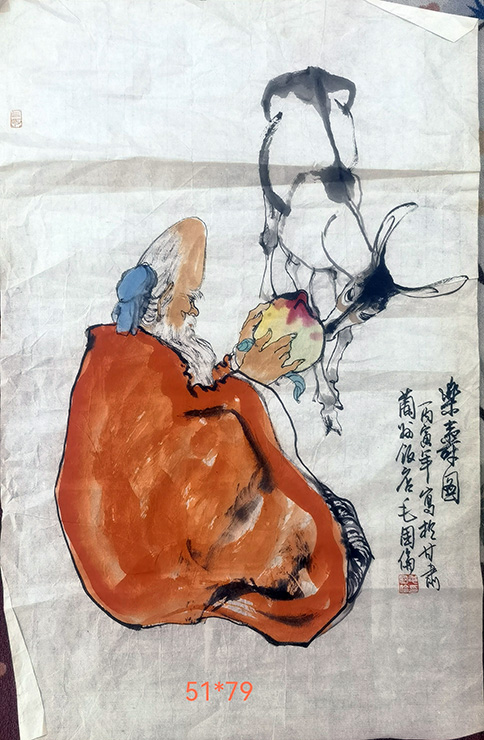 樂壽圖
一丙寅年寫於甘肅
蘭州飯店毛国倫
51*79